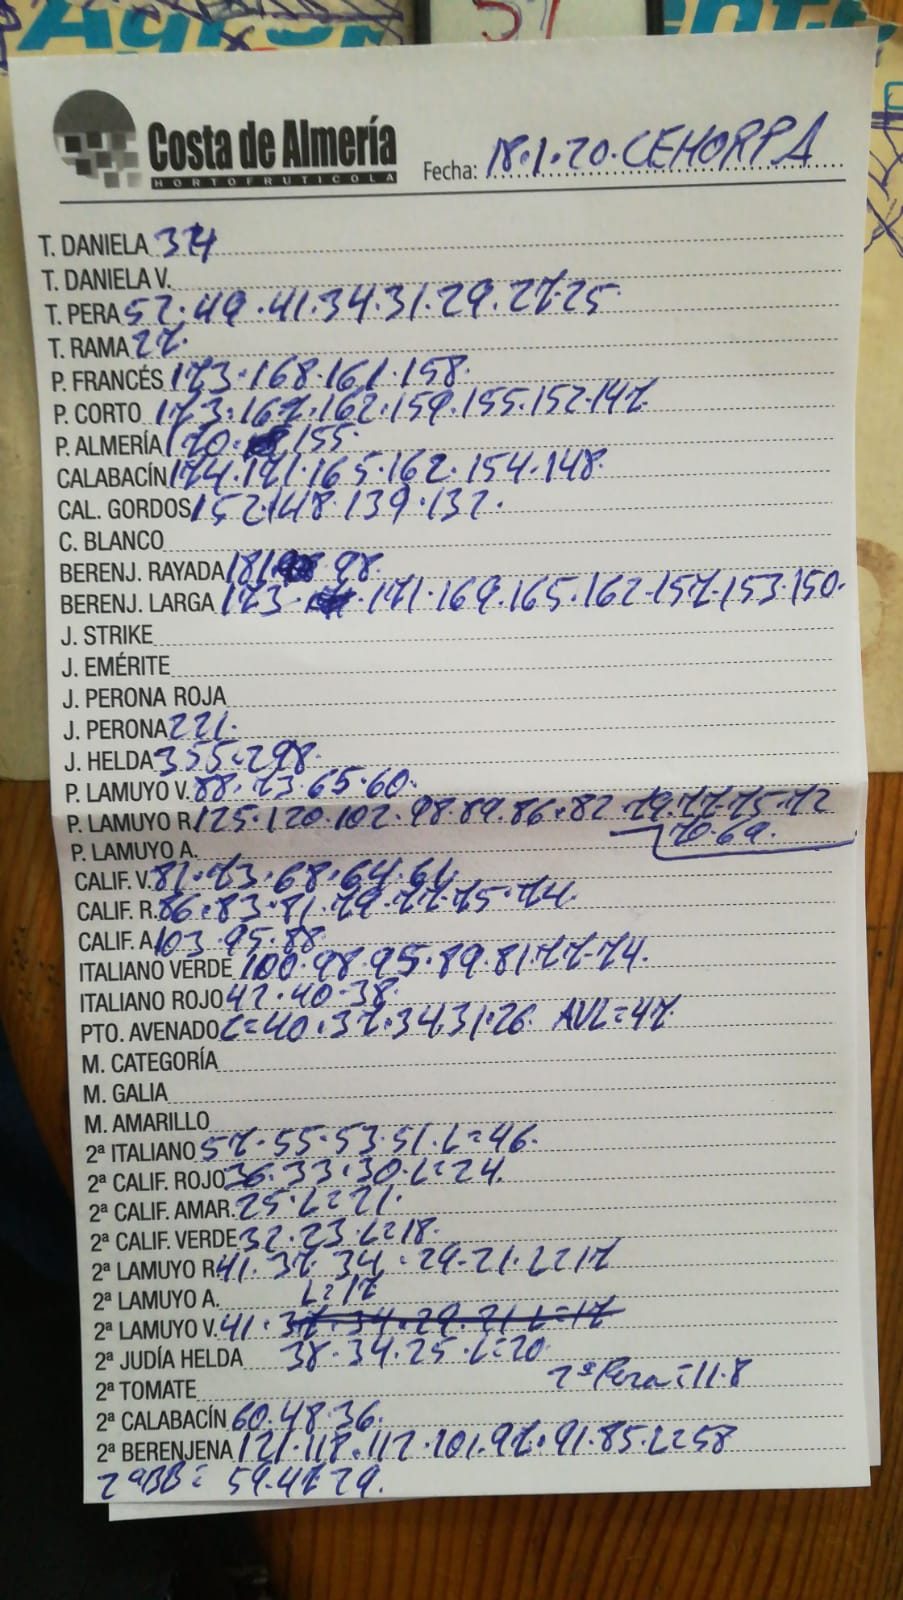 57
Costa de Almería
HORTOFRUTICOLA
Fecha: 18.1.20. CEHORPA
T. DANIELA 374
T. DANIELA V.
T. PERA 52.49.41.34.31.29.27.25
T. RAMA 27.
P. FRANCÉS 173.168.161.158.
P. CORTO 173.167.162.159.155.152.147
P. ALMERÍA 170. 155
CALABACÍN 174.171.165.162.154.148.
CAL. GORDOS 152.148.139.132.
C. BLANCO
BERENJ. RAYADA 181 98.
BERENJ. LARGA 173. .171.169.165.162.157.153.150.
J. STRIKE
J. EMÉRITE
J. PERONA ROJA
J. PERONA 221.
J. HELDA 355.298.
P. LAMUYO V. 88.73.65.60.
P. LAMUYO R. 125.120.102.98.89.86.82 79.77.75.72
70.69.
P. LAMUYO A.
CALIF. V. 81.73.68.64.61.
CALIF. R. 86.83.81.79.77.75.74.
CALIF. A. 103.95.88.
ITALIANO VERDE 100.98.95.89.81.77.74.
ITALIANO ROJO 42.40.38.
PTO. AVENADO L=40.37.34.31.26. AVL=47.
M. CATEGORÍA
M. GALIA
M. AMARILLO
2ª ITALIANO 57.55.53.51.L=46.
2ª CALIF. ROJO 36.33.30.L=24.
2ª CALIF. AMAR. 25.L=21.
2ª CALIF. VERDE 32.23.L=18.
2ª LAMUYO R 41.37.34.29.21.L=17
2ª LAMUYO A. L=17
2ª LAMUYO V. 41.37.34.29.21 L=17
2ª JUDÍA HELDA 38.34.25.L=20.
2ª Pera=11.8
2ª TOMATE
2ª CALABACÍN 60.48.36.
2ª BERENJENA 121.118.112.101.97.91.85.L=58
2ª BB= 59.47.29.